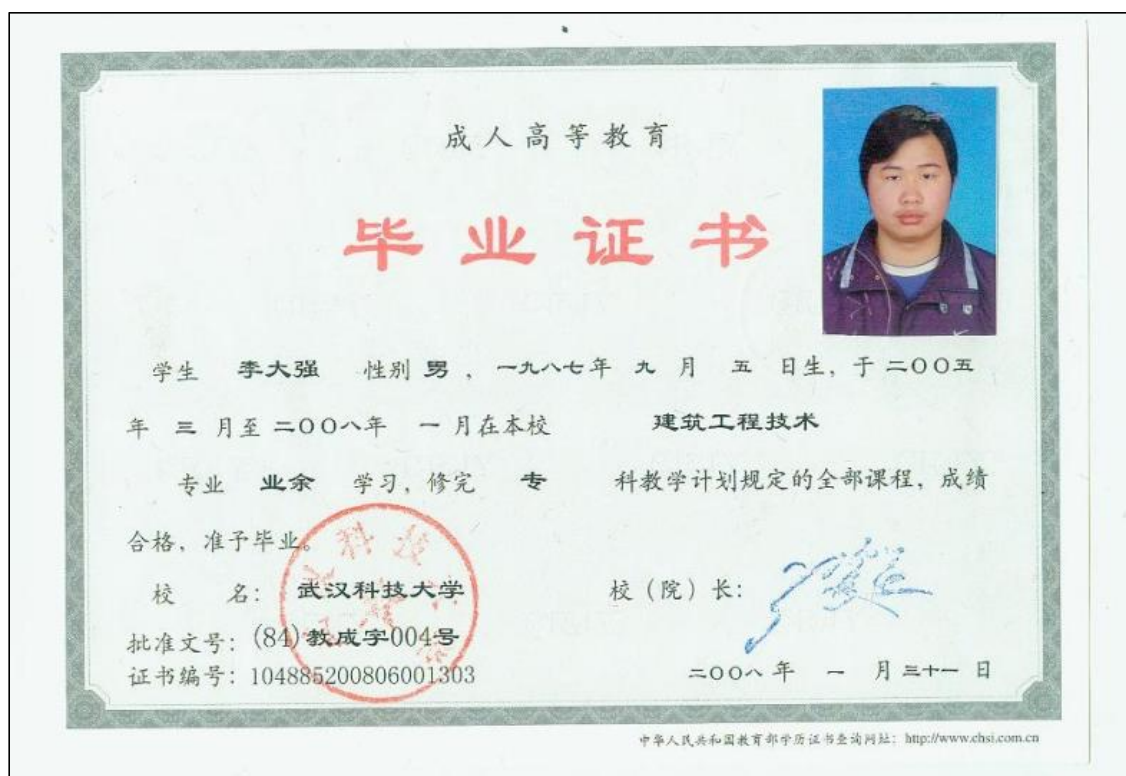 成人高等教育
毕业证书
学生 李大强 性别 男 ，一九八七年 九 月 五 日生，于 二〇〇五
年 三 月至 二〇〇八年 一 月在本校 建筑工程技术
专业 业余 学习，修完 专 科教学计划规定的全部课程，成绩
合格，准予毕业。
校 名： 武汉科技大学 校（院）长：
批准文号：(84)教成字004号
证书编号：104885200806001303 二〇〇八 年 一 月 三十一 日
中华人民共和国教育部学历证书查询网址：http://www.chsi.com.cn